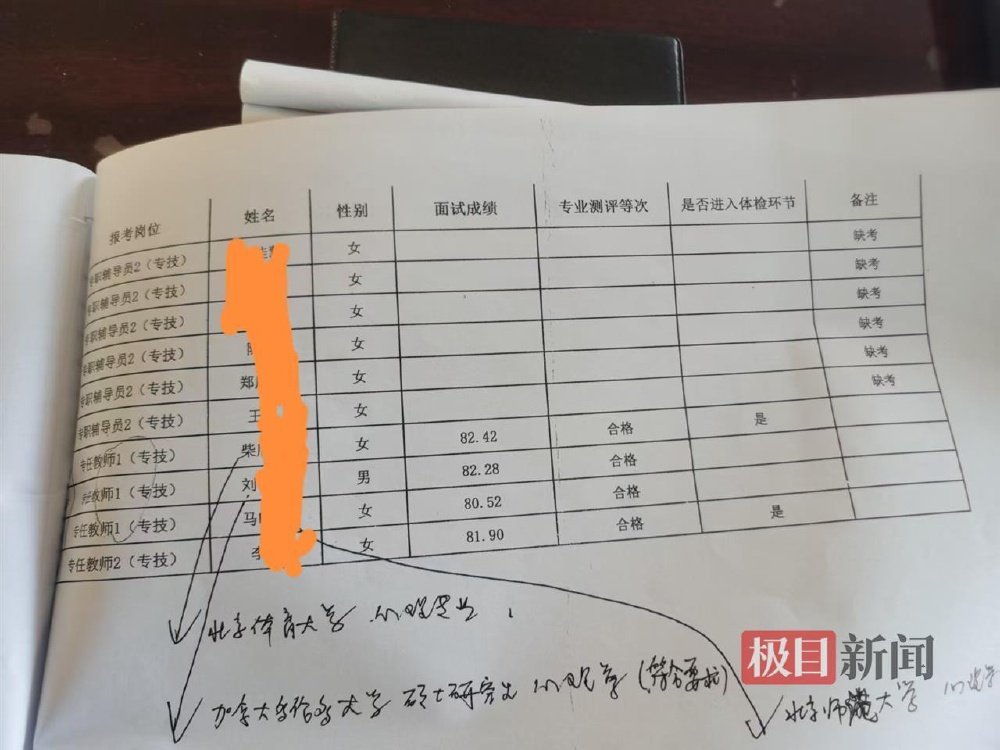 报考岗位 姓名 性别 面试成绩 专业测评等次 是否进入体检环节 备注
专职辅导员2（专技） 女 缺考
专职辅导员2（专技） 女 缺考
专职辅导员2（专技） 女 缺考
专职辅导员2（专技） 女 缺考
专职辅导员2（专技） 郑 女 缺考
专职辅导员2（专技） 王 女 缺考
专任教师1（专技） 柴 女 82.42 合格 是
专任教师1（专技） 刘 男 82.28 合格
专任教师1（专技） 马 女 80.52 合格
专任教师2（专技） 李 女 81.90 合格 是
北京体育大学 心理专业
加拿大多伦多大学 硕士研究生 心理学（符合要求）
北京师范大学 心理学
极目新闻